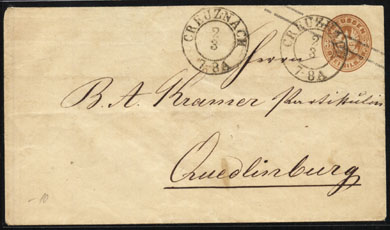 CREUZNACH
2
3
7-8A
CREUZNACH
2
3
7-8A
Herrn
B. A. Kramer Partikulier
Quedlinburg
-10